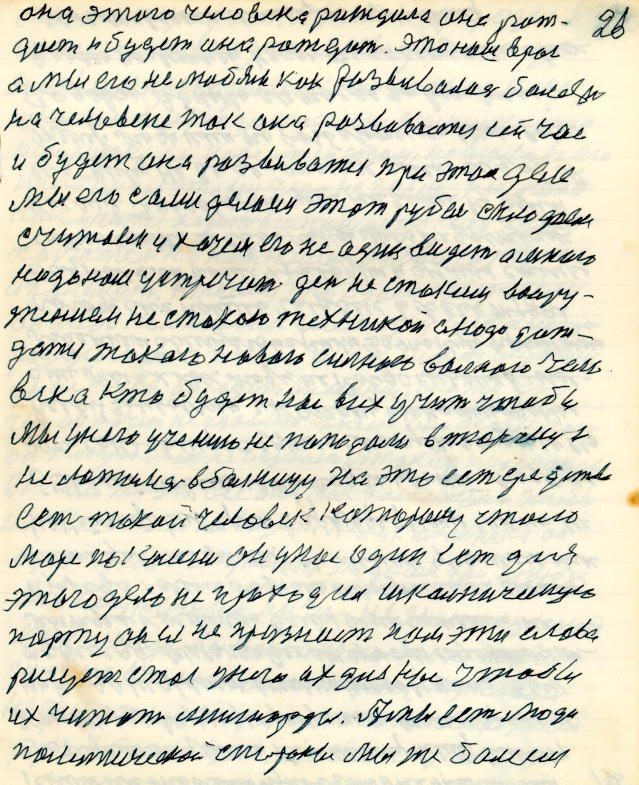 26
она этого человека раждала она рож-
дает и будет она рождат. Это наш враг
а мы его не любим как развивалас болезн
на человеке так она развиваетц сей час
и будет она развиватц при этом деле
мы его сами делаем этот рубеж
считаем и хочем его не один видет а много
надо нам устречат ден не стаким воору-
жением не стакою техникой а надо дож-
датц такого нового силного волного чело
века кто будет нас всех учит чтобы
мы унего учению не попадали в тюрму и
не ложилис в болницу На это ест средства
Сет такой человек Которому стало
море по Колени он унас один ест для
этого дела не проходил
парту он и не признает нам эти слова
рисует стол унего их длиные чтобы
их читат милиярды. А мы ест люди
политической стороны мы же болеем